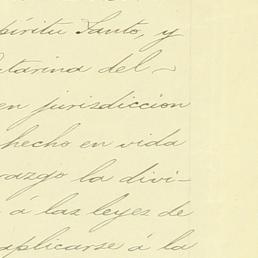 píritu Santo, y
atarina del
en jurisdiccion
hecho en vida
razgo la divi-
á las leyes de
aplicarse á la